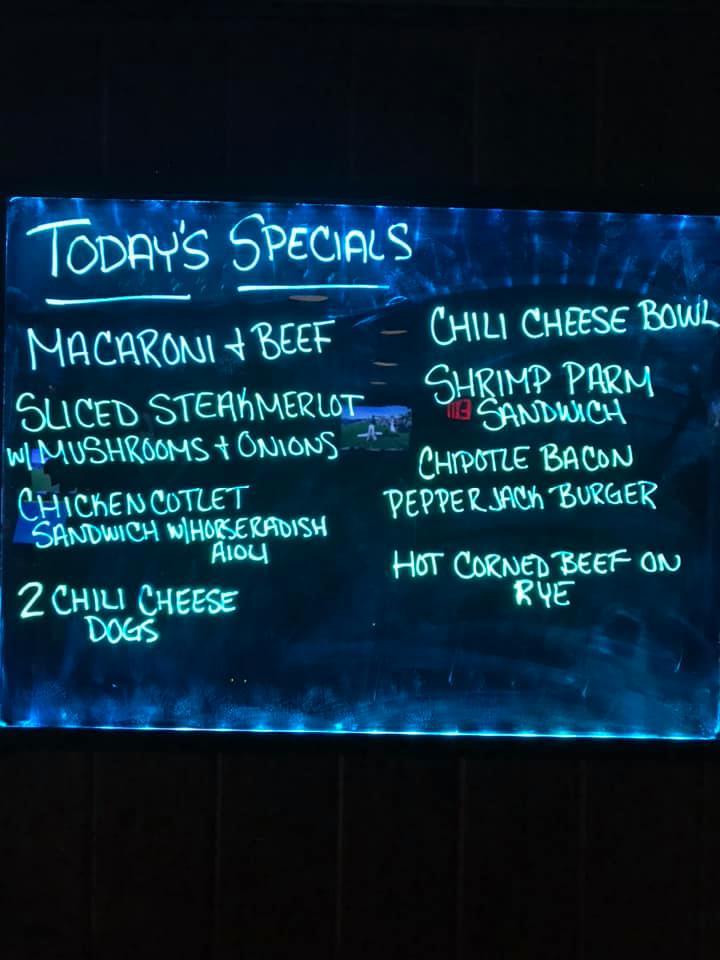 TODAY'S SPECIALS
MACARONI + BEEF
SLICED STEAK MERLOT
W/ MUSHROOMS + ONIONS
CHICKEN COTLET
SANDWICH W/ HORSERADISH
AIOLI
2 CHILI CHEESE
DOGS
CHILI CHEESE BOWL
SHRIMP PARM
SANDWICH
CHIPOTLE BACON
PEPPER JACK BURGER
HOT CORNED BEEF ON
RYE